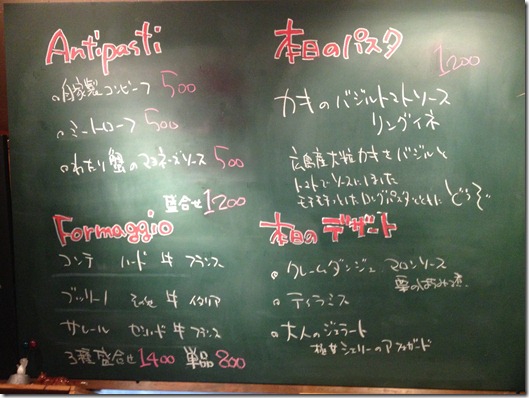 Antipasti
自家製コンビーフ 500
ミートローフ 500
わたり蟹のマヨネーズソース 500
盛合せ 1200
Formaggio
コンテ ハード 牛 フランス
牛 イタリア
サレール セミハード 牛 フランス
3種盛合せ 1400 単品 800
本日のパスタ 1200
カキのバジルトマトソース
リングイネ
広島産大粒カキをバジルと
トマトでソースにしました
モチモチしたロングパスタとともに どうぞ
本日のデザート
クレームダンジュ マロンソース
ティラミス
大人のジェラート
シェリーのアフォガード